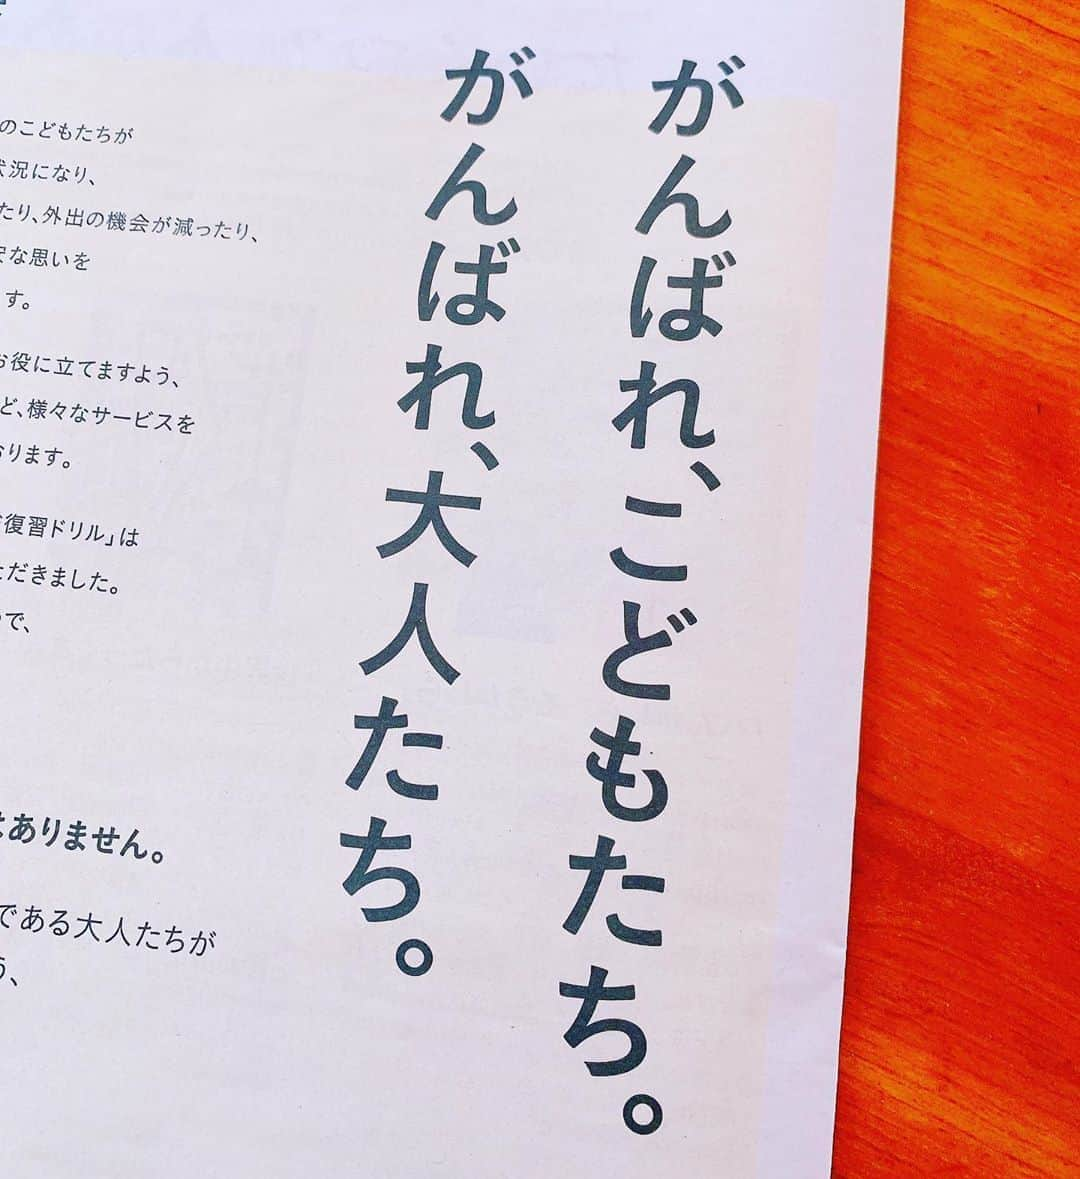 がんばれ、こどもたち。
がんばれ、大人たち。
のこどもたちが
状況になり、
たり、外出の機会が減ったり、
安な思いを
す。
お役に立てますよう、
ど、様々なサービスを
おります。
復習ドリル」は
ただきました。
で、
はありません。
である大人たちが
う、